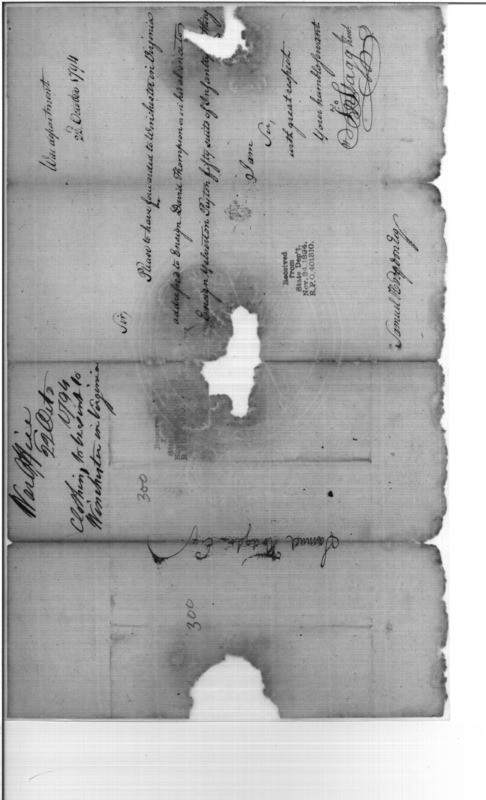 War department
22d October 1794
Sir,
Please to have forwarded to Winchester in Virginia
addressed to Ensign David Thompson or in his absence to
Ensign Yelverton Peyton fifty suits of Infantry
I am
Sir,
with great respect
Your humble Servant
Jno Stagg Junr
Samuel Hodgdon Esq
Received
From
State Dep't,
Nov. 24, 1894.
R.P.O. 401810.
War Office
22 Octr
1794
Clothing, to be sent to
Winchester in Virginia
300
Samuel Hodgdon Esqr
300